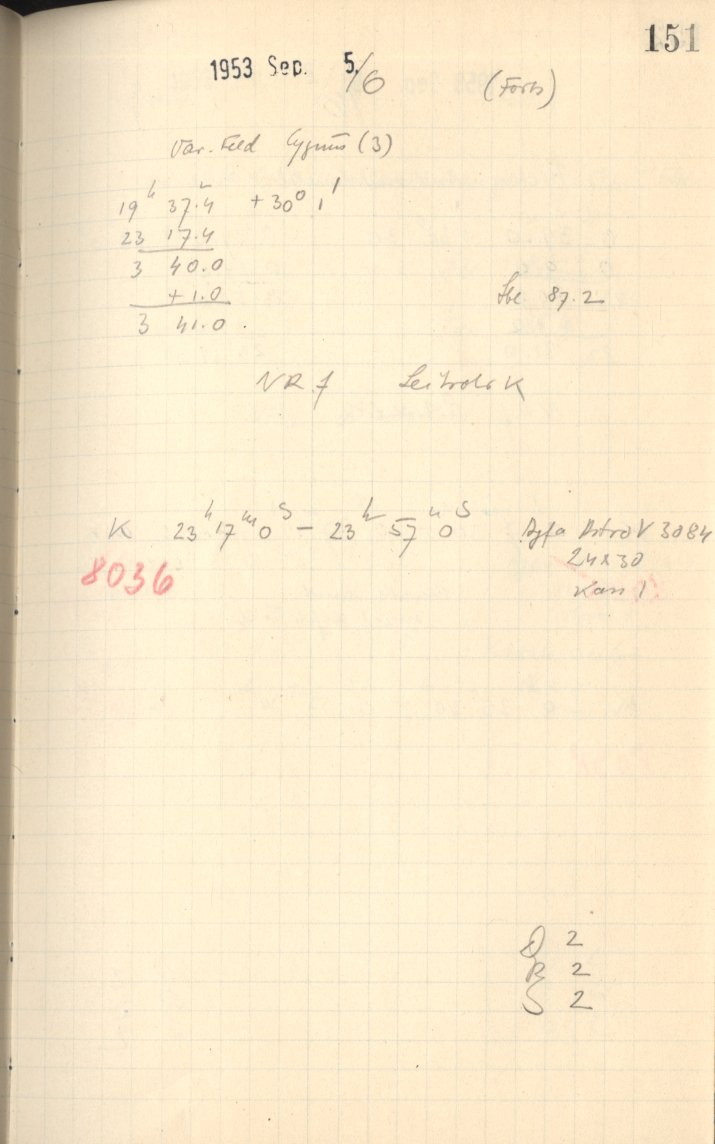 151
1953 Sep. 5./6 (Forts)
Var. Feld Cygnus (3)
19ʰ 37.4ᵐ +30° 1'
23 17.4
3 40.0
+1.0
3 41.0. 87.2
NR 7 K
K 23ʰ17ᵐ0ˢ – 23ʰ 57ᵐ 0ˢ Agfa Astro V 3084
8036 24x30
Kass 1
D 2
R 2
S 2